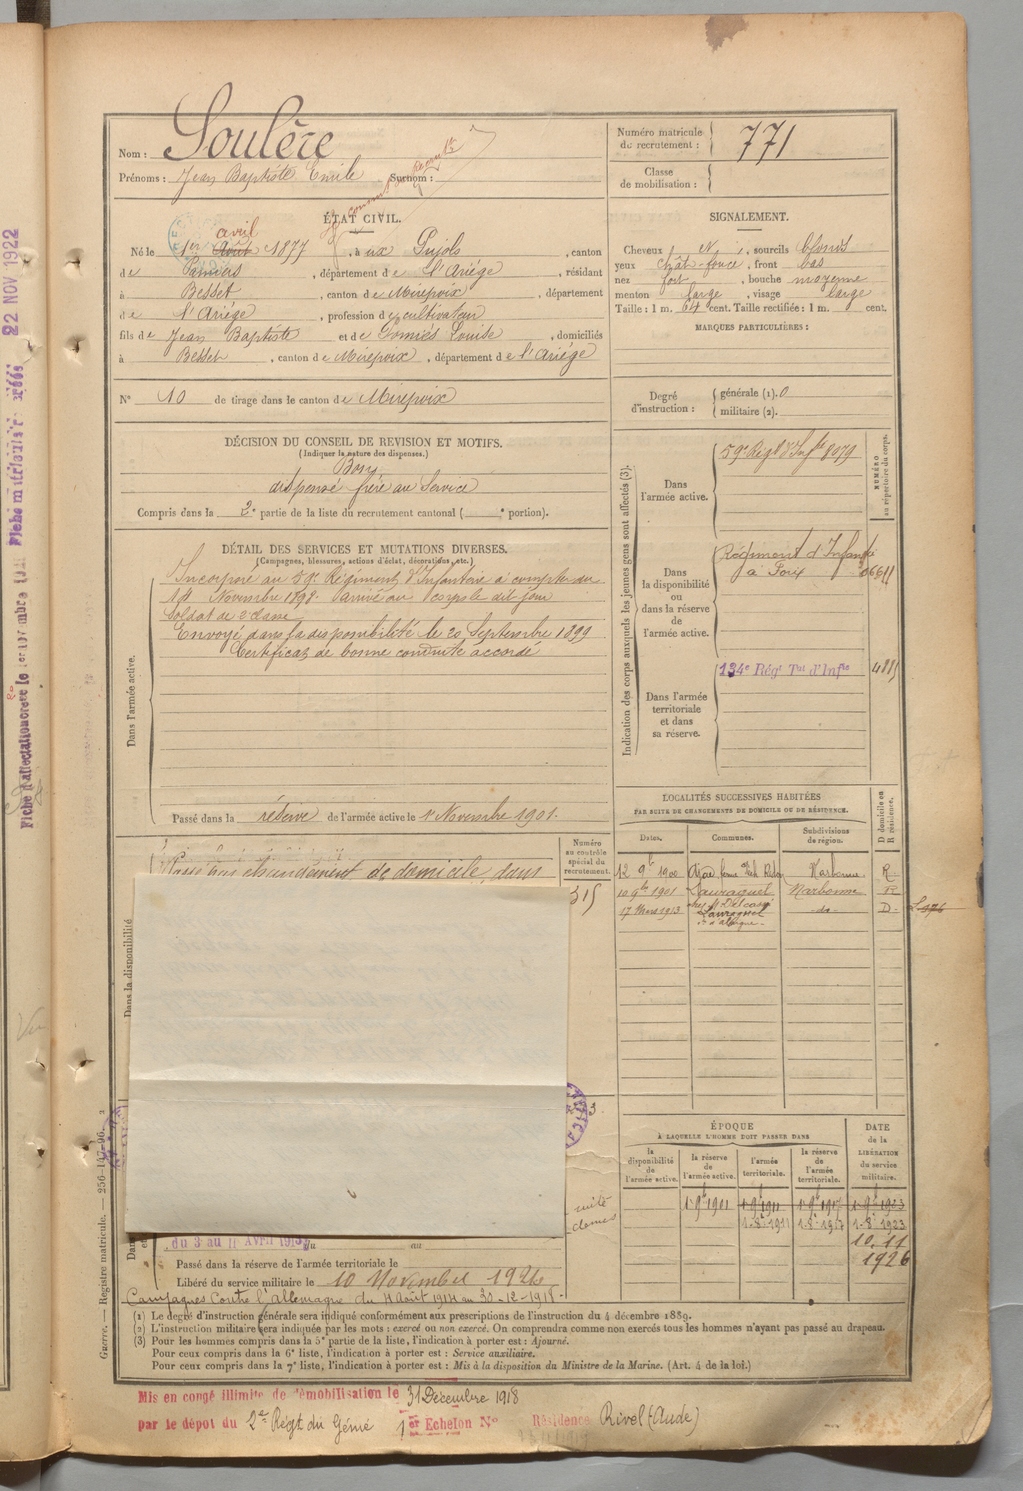 Nom : Soulère
Prénoms : Jean Baptiste Emile Surnom :
Numéro matricule de recrutement : 771
Classe de mobilisation :
ÉTAT CIVIL.
avril
Né le 1er Août 1877, à ux Pujols, canton
de Pamiers, département de l'Ariège, résidant
à Besset, canton de Mirepoix, département
de l'Ariège, profession de cultivateur
fils de Jean Baptiste et de Gomiés Louise, domiciliés
à Besset, canton de Mirepoix, département de l'Ariège
N° 10 de tirage dans le canton de Mirepoix
SIGNALEMENT.
Cheveux N, sourcils blonds
yeux chât-foncé, front bas
nez fort, bouche moyenne
menton large, visage large
Taille : 1 m. 64 cent. Taille rectifiée : 1 m. cent.
MARQUES PARTICULIÈRES :
Degré d'instruction : générale (1). 0
militaire (2).
DÉCISION DU CONSEIL DE REVISION ET MOTIFS.
(Indiquer la nature des dispenses.)
Bon,
dispensé frère au Service
Compris dans la 2e partie de la liste du recrutement cantonal ( e portion).
DÉTAIL DES SERVICES ET MUTATIONS DIVERSES.
(Campagnes, blessures, actions d'éclat, décorations, etc.)
Dans l'armée active.
Incorporé au 59e Régiment d'Infanterie à compter du
14 Novembre 1898. Arrivé au corps le dit jour
Soldat de 2e classe
Envoyé dans la disponibilité le 20 Septembre 1899
Certificat de bonne conduite accordé
Passé dans la réserve de l'armée active le 1er Novembre 1901.
Indication des corps auxquels les jeunes gens sont affectés (3).
NUMÉRO au répertoire du corps.
Dans l'armée active.
59e Régt d'Infie 8079
Dans la disponibilité ou dans la réserve de l'armée active.
Régiment d'Infanterie
à Foix
Dans l'armée territoriale et dans sa réserve.
134e Régt Tal d'Infie
LOCALITÉS SUCCESSIVES HABITÉES
PAR SUITE DE CHANGEMENTS DE DOMICILE OU DE RÉSIDENCE.
Dates. Communes. Subdivisions de région. D domicile ou R résidence.
12 9b 1900 Narbonne R
10 9bre 1901 Lauraguel Narbonne R
17 Mars 1913 chez Mr Delcassé Lauraguel -do- D
Numéro au contrôle spécial du recrutement.
315
Dans la disponibilité
Passé par changement de domicile, dans
3.
ÉPOQUE
À LAQUELLE L'HOMME DOIT PASSER DANS
la disponibilité de l'armée active.
la réserve de l'armée active.
l'armée territoriale.
la réserve de l'armée territoriale.
DATE de la LIBÉRATION du service militaire.
1-9b 1901 1-9b 1911 1-9b 1917 1-9b 1923
1-8b 1911 1-8b 1917 1-8b 1923
10.11
1926
du 3 au 11 Avril 1913 du au
Passé dans la réserve de l'armée territoriale le
Libéré du service militaire le 10 Novembre 1926
Campagnes contre l'allemagne du 4 Août 1914 au 30-12-1918-
(1) Le degré d'instruction générale sera indiqué conformément aux prescriptions de l'instruction du 4 décembre 1889.
(2) L'instruction militaire sera indiquée par les mots : exercé ou non exercé. On comprendra comme non exercés tous les hommes n'ayant pas passé au drapeau.
(3) Pour les hommes compris dans la 5e partie de la liste, l'indication à porter est : Ajourné.
Pour ceux compris dans la 6e liste, l'indication à porter est : Service auxiliaire.
Pour ceux compris dans la 7e liste, l'indication à porter est : Mis à la disposition du Ministre de la Marine. (Art. 4 de la loi.)
Mis en congé illimité de démobilisation le 31 Décembre 1918
par le dépot du 2e Régt du Génie 1er Echelon N° Résidence Rivel (Aude)
Guerre. — Registre matricule. — 256-147-96.
22 NOV 1922